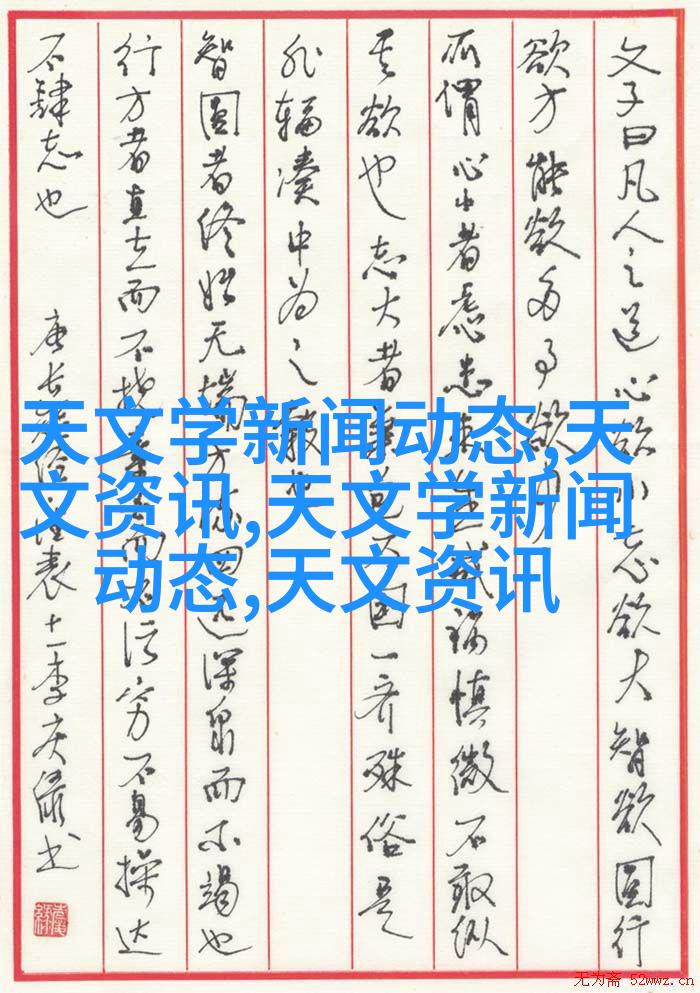 文子曰凡人之道心欲小志欲大智欲圆行
欲方能欲多事欲少
所谓心小者虑患未生戒祸慎微不敢纵
其欲也志大者兼包万国一齐殊俗是
非辐凑中为之毂也
智圆者终始无端方流四远深泉而不竭也
行方者直立而不挠素白而不污穷不易操达
不肆志也
天文学新闻动态,天
文资讯,天文学新闻
动态,天文资讯
无为斋 52wwz.cn